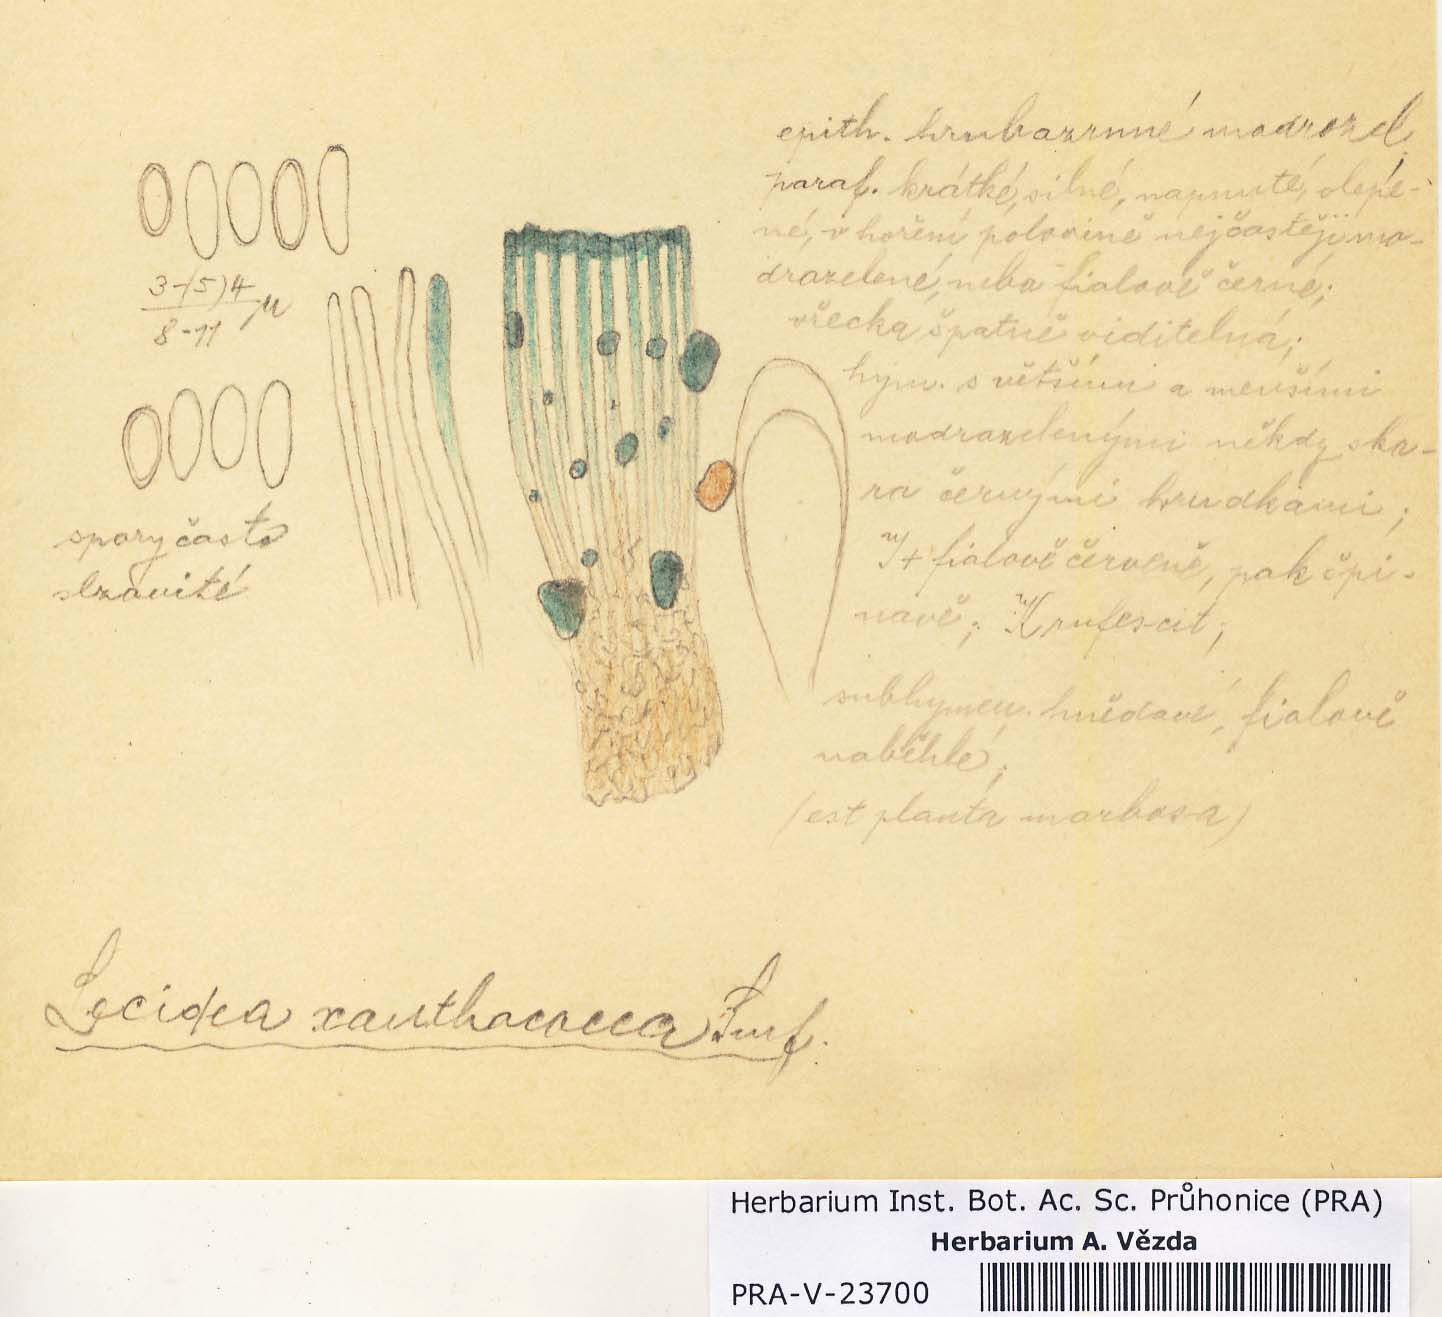 epith. hrubozrnné modrozel.
paraf. krátké, silné, napnuté, slepe-
né, v hoření polovině nejčastěji mo-
drozelené, nebo fialově černé;
vřecka špatně viditelná;
hym. s většími a menšími
modrozelenými někdy sko-
ro černými hrudkami;
J+ fialově červeně, pak špi-
navě; K rufescit;
subhymen. hnědavé, fialově
naběhlé;
(est planta morbosa)
3-(5)4
8-11 µ
spory často
slzovité
Lecidea xanthococca Smf.
Herbarium Inst. Bot. Ac. Sc. Průhonice (PRA)
Herbarium A. Vězda
PRA-V-23700